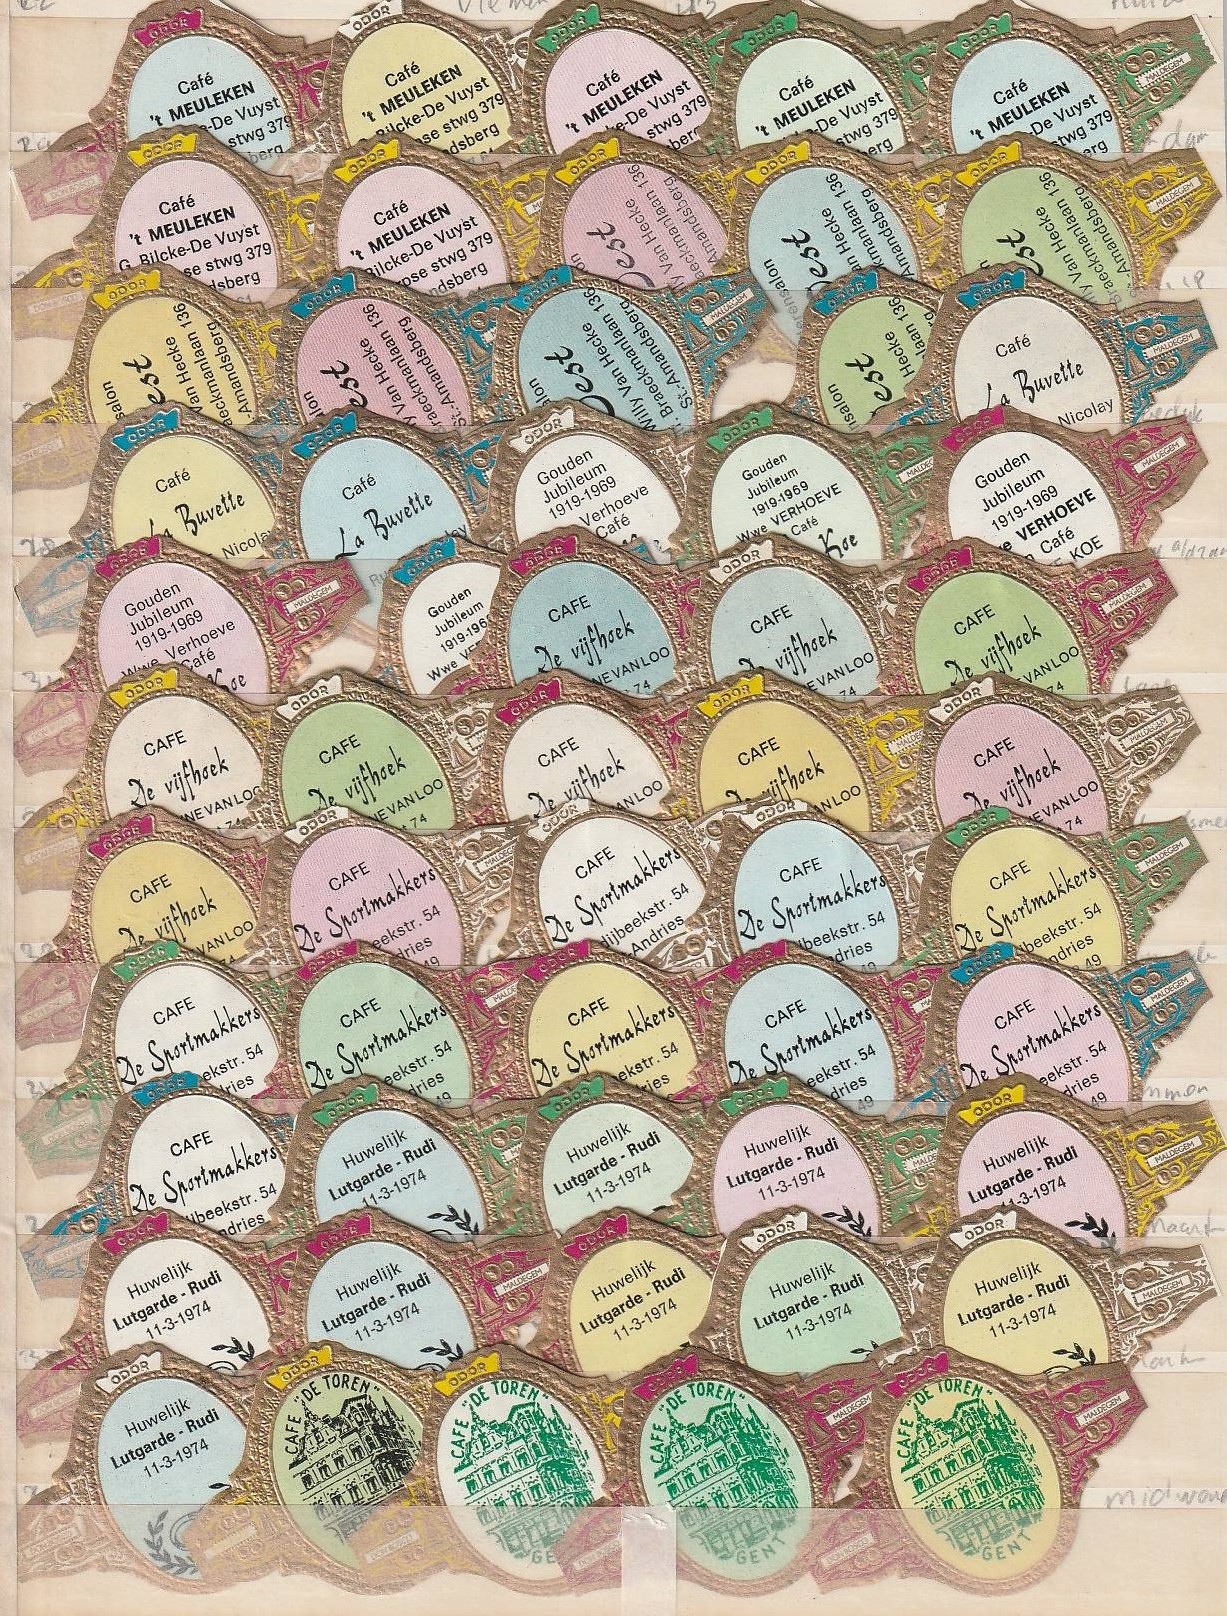 ODOR
Café
't MEULEKEN
-De Vuyst
stwg 379
sberg
ODOR
Café
't MEULEKEN
Bilcke-De Vuyst
se stwg 379
ndsberg
ODOR
Café
't MEULEKEN
ke-De Vuyst
stwg 379
berg
ODOR
Café
't MEULEKEN
-De Vuyst
stwg 379
ODOR
Café
't MEULEKEN
-De Vuyst
stwg 379
erg
MALDEGEM
ODOR
Café
't MEULEKEN
G. Bilcke-De Vuyst
pse stwg 379
dsberg
ODOR
Café
't MEULEKEN
Bilcke-De Vuyst
rpse stwg 379
ndsberg
ODOR
est
y Van Hecke
aeckmanlaan 136
Amandsberg
ODOR
est
n Hecke
kmanlaan 136
Amandsberg
ODOR
est
lly Van Hecke
Braeckmanlaan 136
.-Amandsberg
MALDEGEM
ODOR
salon
est
Van Hecke
aeckmanlaan 136
Amandsberg
ODOR
lon
est
y Van Hecke
raeckmanlaan 136
St.-Amandsberg
ODOR
lon
est
Willy Van Hecke
Braeckmanlaan 136
St.-Amandsberg
MALDEGEM
ODOR
nsalon
est
Hecke
laan 136
ODOR
Café
La Buvette
Nicolay
MALDEGEM
ODOR
Café
La Buvette
Nicolay
ODOR
Café
La Buvette
ODOR
Gouden
Jubileum
1919-1969
Verhoeve
Café
ODOR
Gouden
Jubileum
1919-1969
Wwe VERHOEVE
Café
Koe
ODOR
Gouden
Jubileum
1919-1969
e VERHOEVE
Café
KOE
MALDEGEM
ODOR
Gouden
Jubileum
1919-1969
Wwe Verhoeve
Café
Koe
MALDEGEM
ODOR
Gouden
Jubileum
1919-196
Wwe VE
ODOR
CAFE
De vijfhoek
NEVANLOO
74
ODOR
CAFE
De vijfhoek
EVANLOO
74
ODOR
CAFE
De vijfhoek
NEVANLOO
74
MALDEGEM
ODOR
CAFE
De vijfhoek
NEVANLOO
ODOR
CAFE
De vijfhoek
NEVANLOO
74
ODOR
CAFE
De vijfhoek
ANLOO
ODOR
CAFE
De vijfhoek
ANLOO
MALDEGEM
ODOR
CAFE
De vijfhoek
NEVANLOO
74
MALDEGEM
ODOR
CAFE
De vijfhoek
VANLOO
ODOR
CAFE
De Sportmakkers
beekstr. 54
ndries
49
MALDEGEM
ODOR
CAFE
De Sportmakkers
dijbeekstr. 54
Andries
ODOR
CAFE
De Sportmakkers
beekstr. 54
dries
49
ODOR
CAFE
De Sportmakkers
beekstr. 54
ndries
49
MALDEGEM
ODOR
CAFE
De Sportmakkers
eekstr. 54
dries
ODOR
CAFE
De Sportmakkers
eekstr. 54
dries
MALDEGEM
ODOR
CAFE
De Sportmakkers
eekstr. 54
ries
ODOR
CAFE
De Sportmakkers
eekstr. 54
dries
ODOR
CAFE
De Sportmakkers
eekstr. 54
dries
49
MALDEGEM
ODOR
CAFE
De Sportmakkers
jbeekstr. 54
ndries
ODOR
Huwelijk
Lutgarde - Rudi
11-3-1974
ODOR
Huwelijk
Lutgarde - Rudi
11-3-1974
ODOR
Huwelijk
Lutgarde - Rudi
11-3-1974
ODOR
Huwelijk
Lutgarde - Rudi
11-3-1974
MALDEGEM
maart
ODOR
Huwelijk
Lutgarde - Rudi
11-3-1974
ODOR
Huwelijk
Lutgarde - Rudi
11-3-1974
MALDEGEM
ODOR
Huwelijk
Lutgarde - Rudi
11-3-1974
ODOR
Huwelijk
Lutgarde - Rudi
11-3-1974
ODOR
Huwelijk
Lutgarde - Rudi
11-3-1974
MALDEGEM
ODOR
Huwelijk
Lutgarde - Rudi
11-3-1974
ODOR
CAFE "DE TOREN"
ODOR
CAFE "DE TOREN"
GE
ODOR
CAFE "DE TOREN"
GENT
MALDEGEM
ODOR
CAFE "DE TOREN"
GENT
MALDEGEM